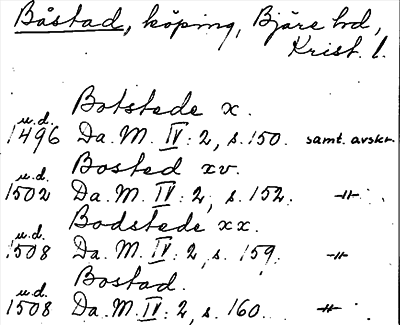 Båstad, köping, Bjäre hd,
Krist. l.
Botstede x.
u.d.
1496 Da. M. IV: 2, s. 150. samt. avskr.
Bosted xv.
u.d.
1502 Da. M. IV: 2, s. 152. -"-
Bodstede xx.
u.d.
1508 Da. M. IV: 2, s. 159. -"-
Bostad.
u.d.
1508 Da. M. IV: 2, s. 160. -"-